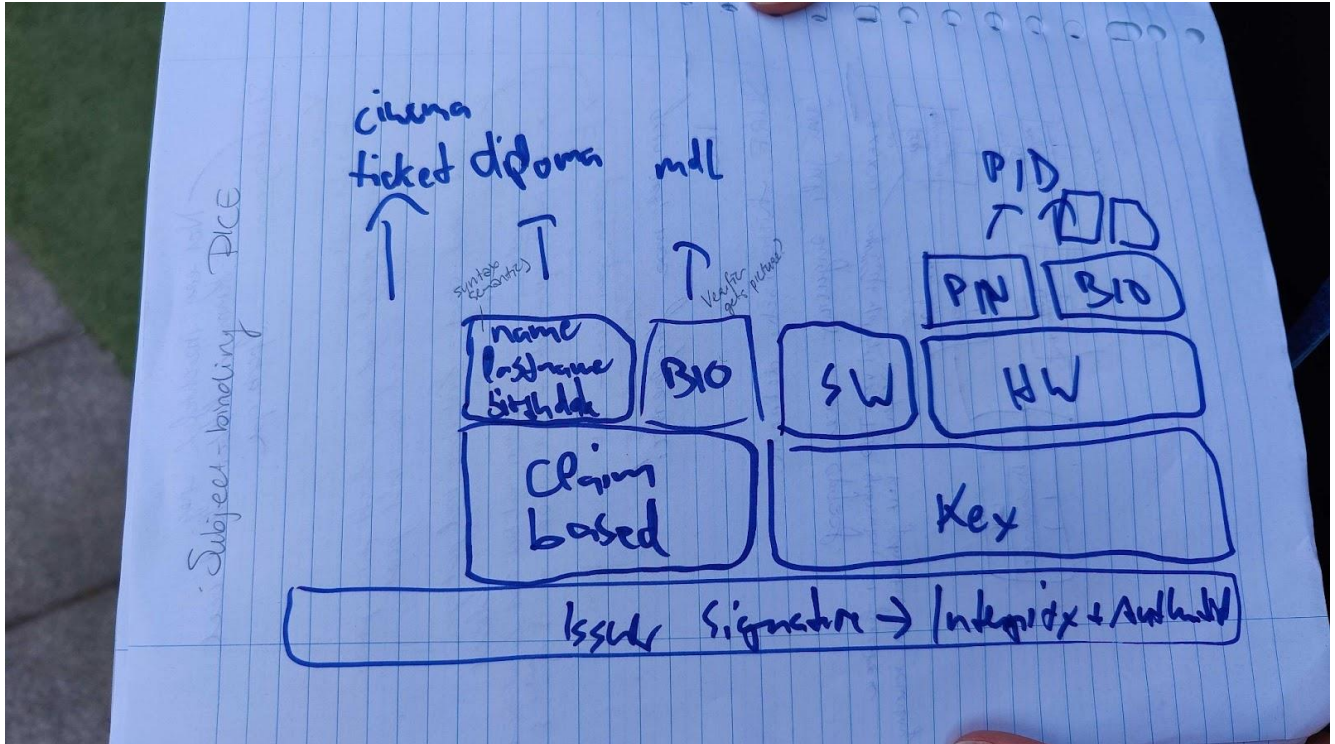 cinema
ticket diploma mdl PID
syntax
semantics
Verifier
gets picture
PIN BIO
name
lastname
birthdate
BIO SW HW
Claim
based
Key
Issuer Signature → Integrity +
Subject-binding DICE